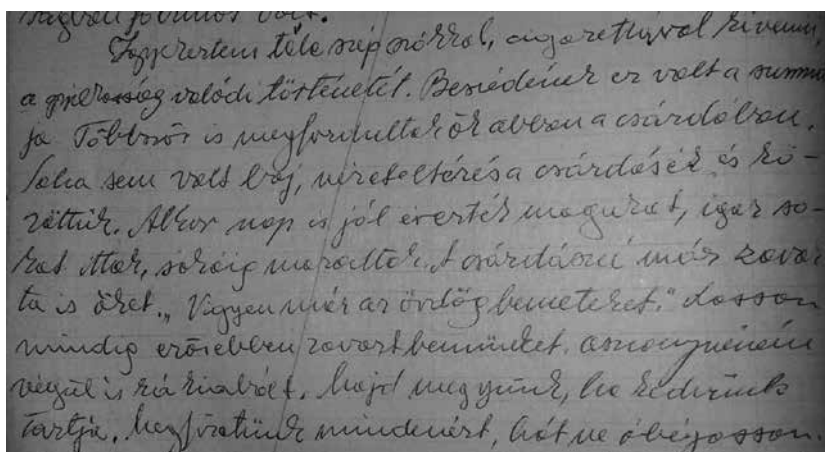 ságban javamos volt.
Igyekeztem tőle szép szókkal, cigarettával kivenni,
a gyilkosság valódi történetét. Beszédének ez volt a summá
ja Többször is megfordultak ők abban a csárdában.
Soha sem volt baj, nézeteltérés a csárdásék és kö-
zöttük. Akkor nap is jól érezték magukat, igaz so-
kat ittak, sokáig maradtak. A csárdásné már zavar
ta is őket. „Vigyen már az ördög benneteket." Lassan
mindig erősebben zavart bennünket. asszonynéném
végül is rá kiabált. Majd megyünk, ha kedvünk
tartja. Megfizetünk mindenért, hát ne óbégasson.